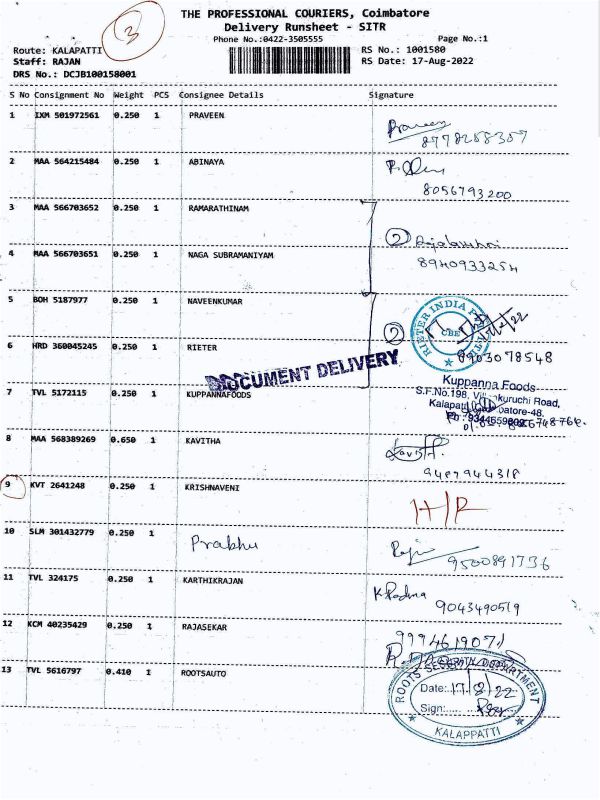 3
THE PROFESSIONAL COURIERS, Coimbatore
Delivery Runsheet - SITR
Phone No.:0422-3505555 Page No.:1
Route: KALAPATTI RS No.: 1001580
Staff: RAJAN RS Date: 17-Aug-2022
DRS No.: DCJB100158001
S No Consignment No Weight PCS Consignee Details Signature
1 IXM 501972561 0.250 1 PRAVEEN Praveen
8778258307
2 MAA 564215484 0.250 1 ABINAYA
8056793200
3 MAA 566703652 0.250 1 RAMARATHINAM
2
4 MAA 566703651 0.250 1 NAGA SUBRAMANIYAM 8940933254
5 BOH 5187977 0.250 1 NAVEENKUMAR
RIETER INDIA
CBE
2
6 HRD 360045245 0.250 1 RIETER 8903078548
DOCUMENT DELIVERY
7 TVL 5172115 0.250 1 KUPPANNAFOODS
Kuppanna Foods
S.F.No.198, kuruchi Road,
8 MAA 568389269 0.650 1 KAVITHA
9487944318
9 KVT 2641248 0.250 1 KRISHNAVENI H/R
10 SLM 301432779 0.250 1 Prabhu
9500891736
11 TVL 324175 0.250 1 KARTHIKRAJAN K Padma
9043490519
12 KCM 40235429 0.250 1 RAJASEKAR 9994619071
13 TVL 5616797 0.410 1 ROOTSAUTO
ROOTS DEPARTMENT
Date: 17/8/22
Sign:
KALAPPATTI